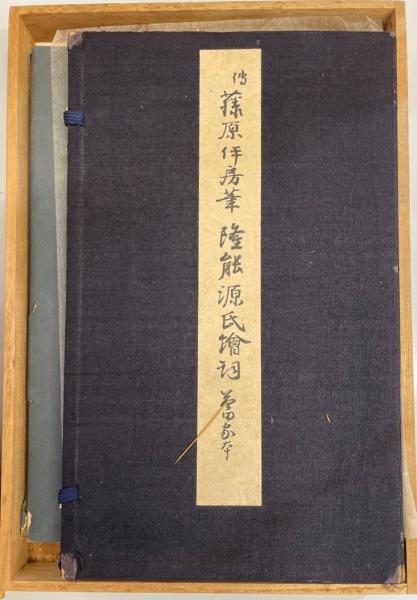 傳 藤原伊房筆 隆能源氏繪詞 蕾家本